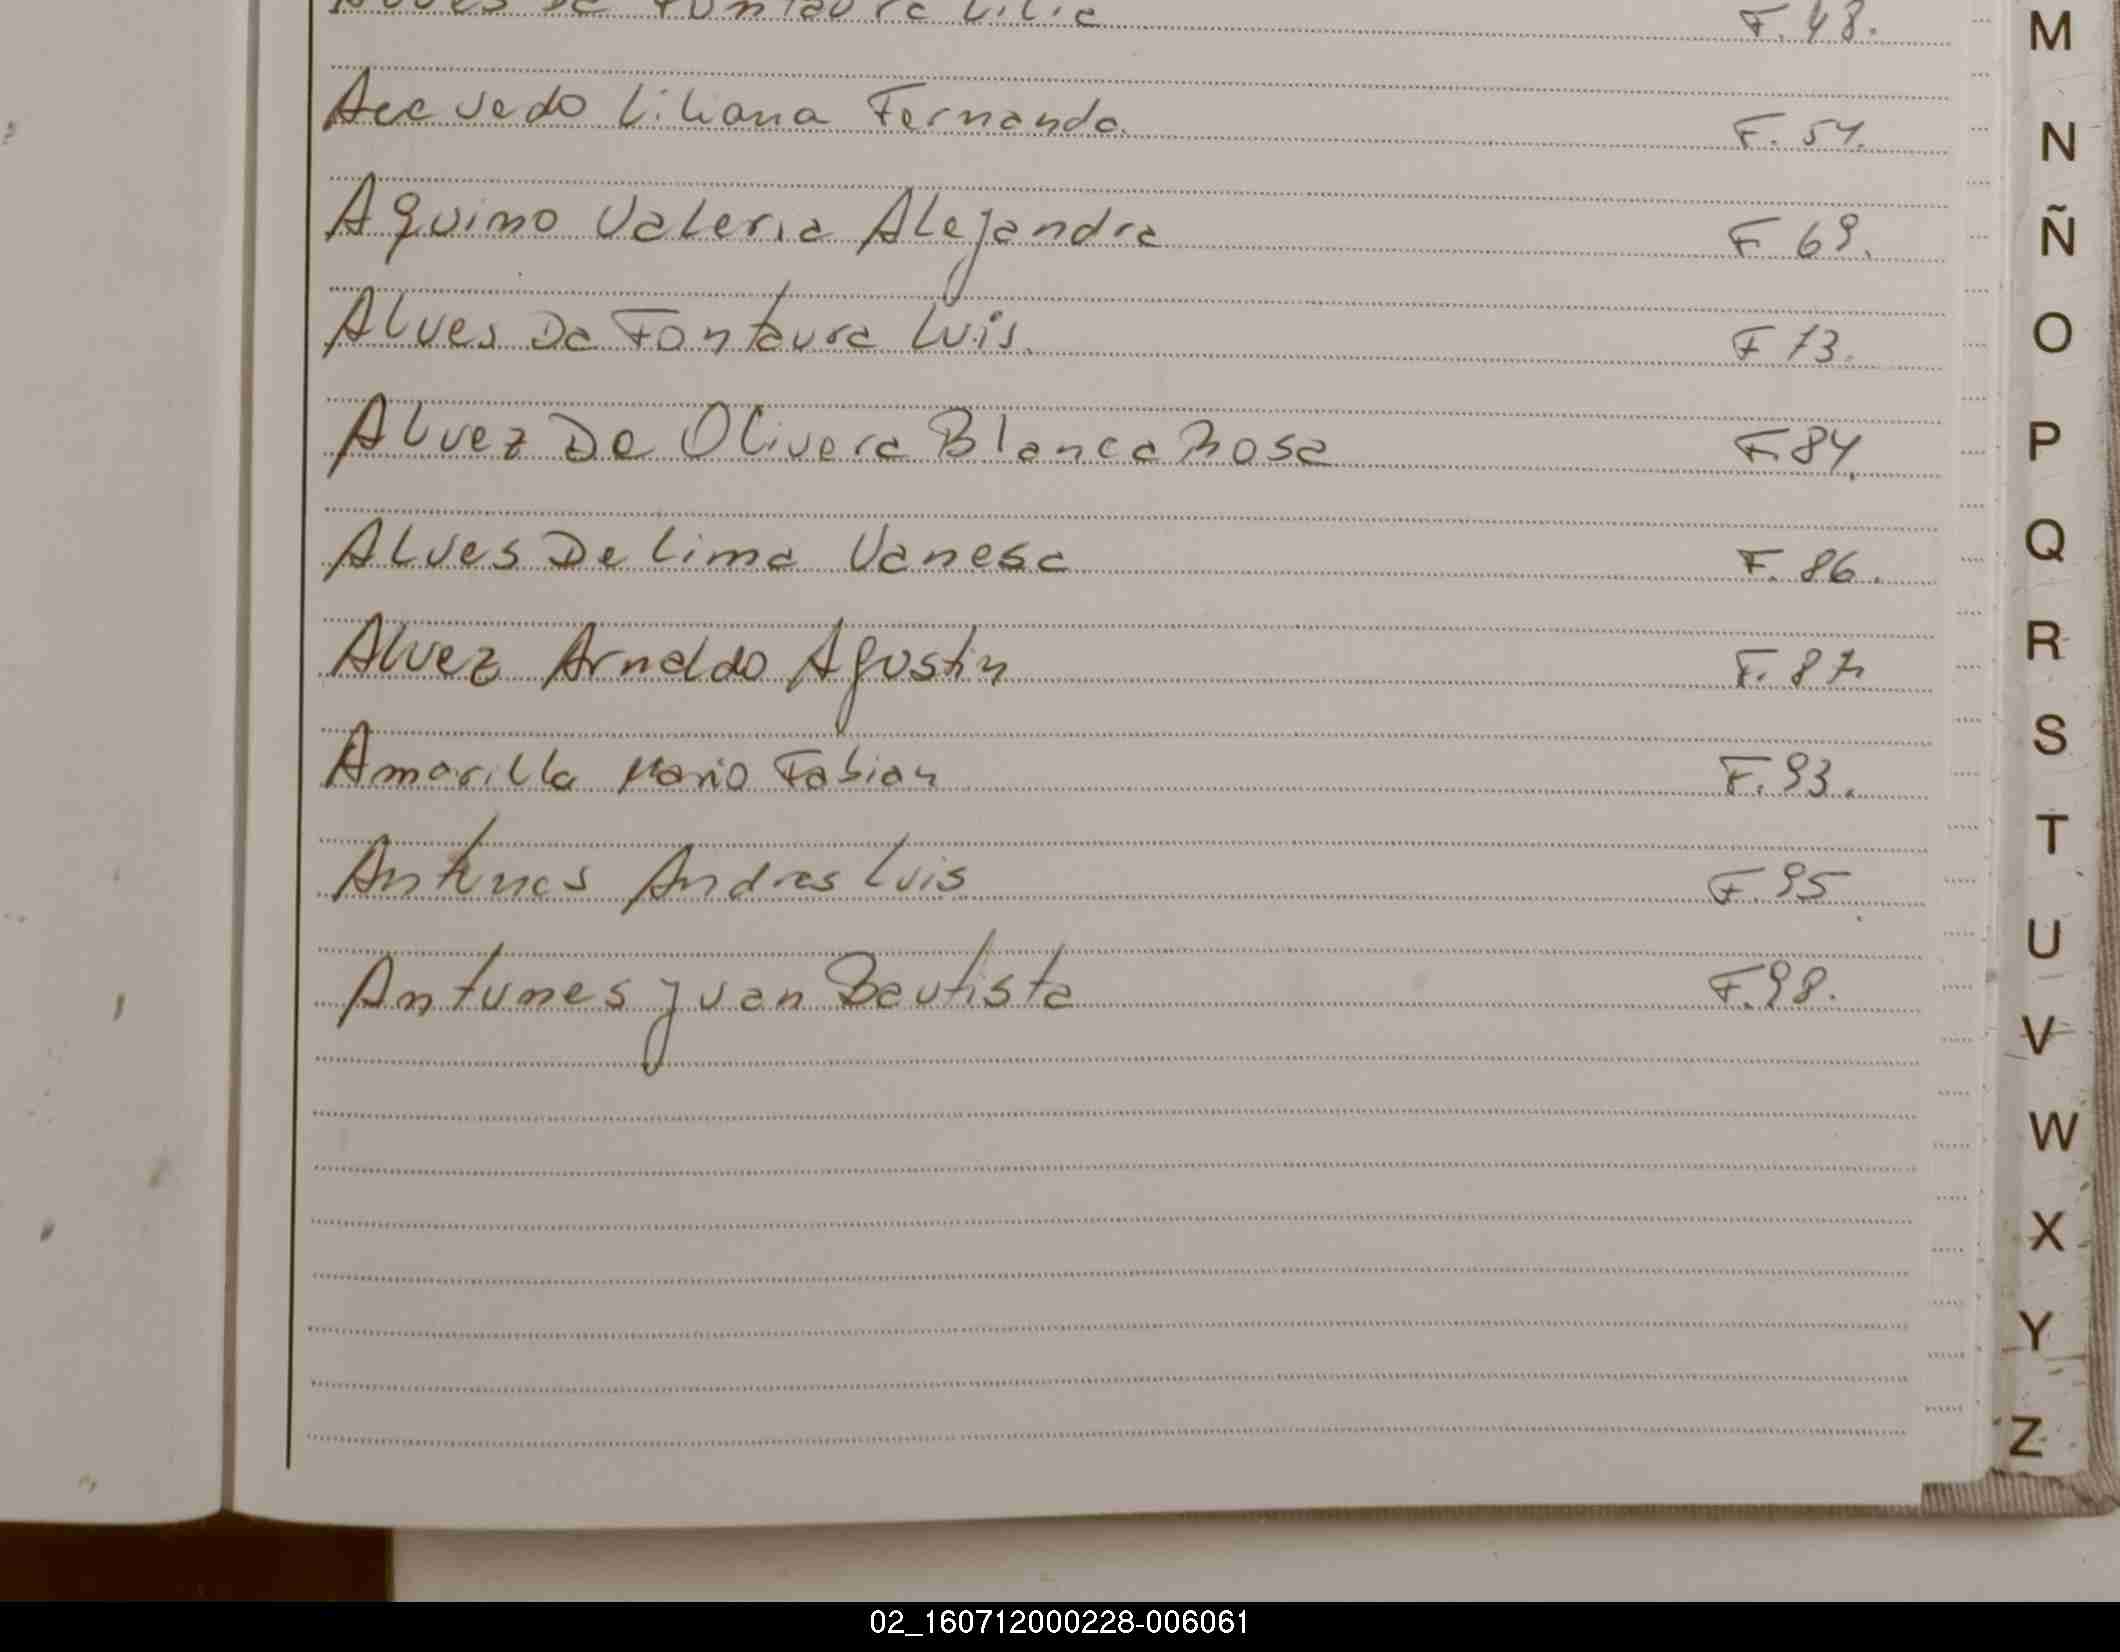 Alves Da Fontaura Lilia F. 48.
Acevedo Liliana Fernanda. F. 54.
Aquino Valeria Alejandra F 69.
Alves Da Fontaura Luis. F 73.
Alvez De Olivera Blanca Rosa F. 84.
Alves De Lima Vanesa F. 86.
Alvez Arnaldo Agustin F. 87.
Amarilla Mario Fabian F. 93.
Antunes Andres Luis F. 95.
Antunes Juan Bautista F. 98.
M
N
Ñ
O
P
Q
R
S
T
U
V
W
X
Y
Z
02_160712000228-006061